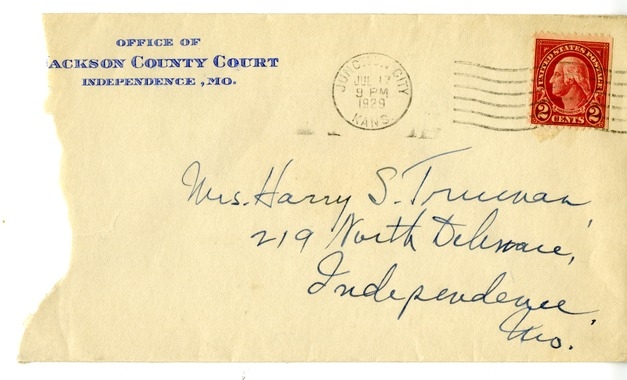 OFFICE OF
ACKSON COUNTY COURT
INDEPENDENCE, MO.
JUNCTION CITY
JUL 17
9 PM
1929
KANS.
UNITED STATES POSTAGE
2 CENTS 2
Mrs. Harry S. Truman
219 North Delaware,
Independence,
Mo.